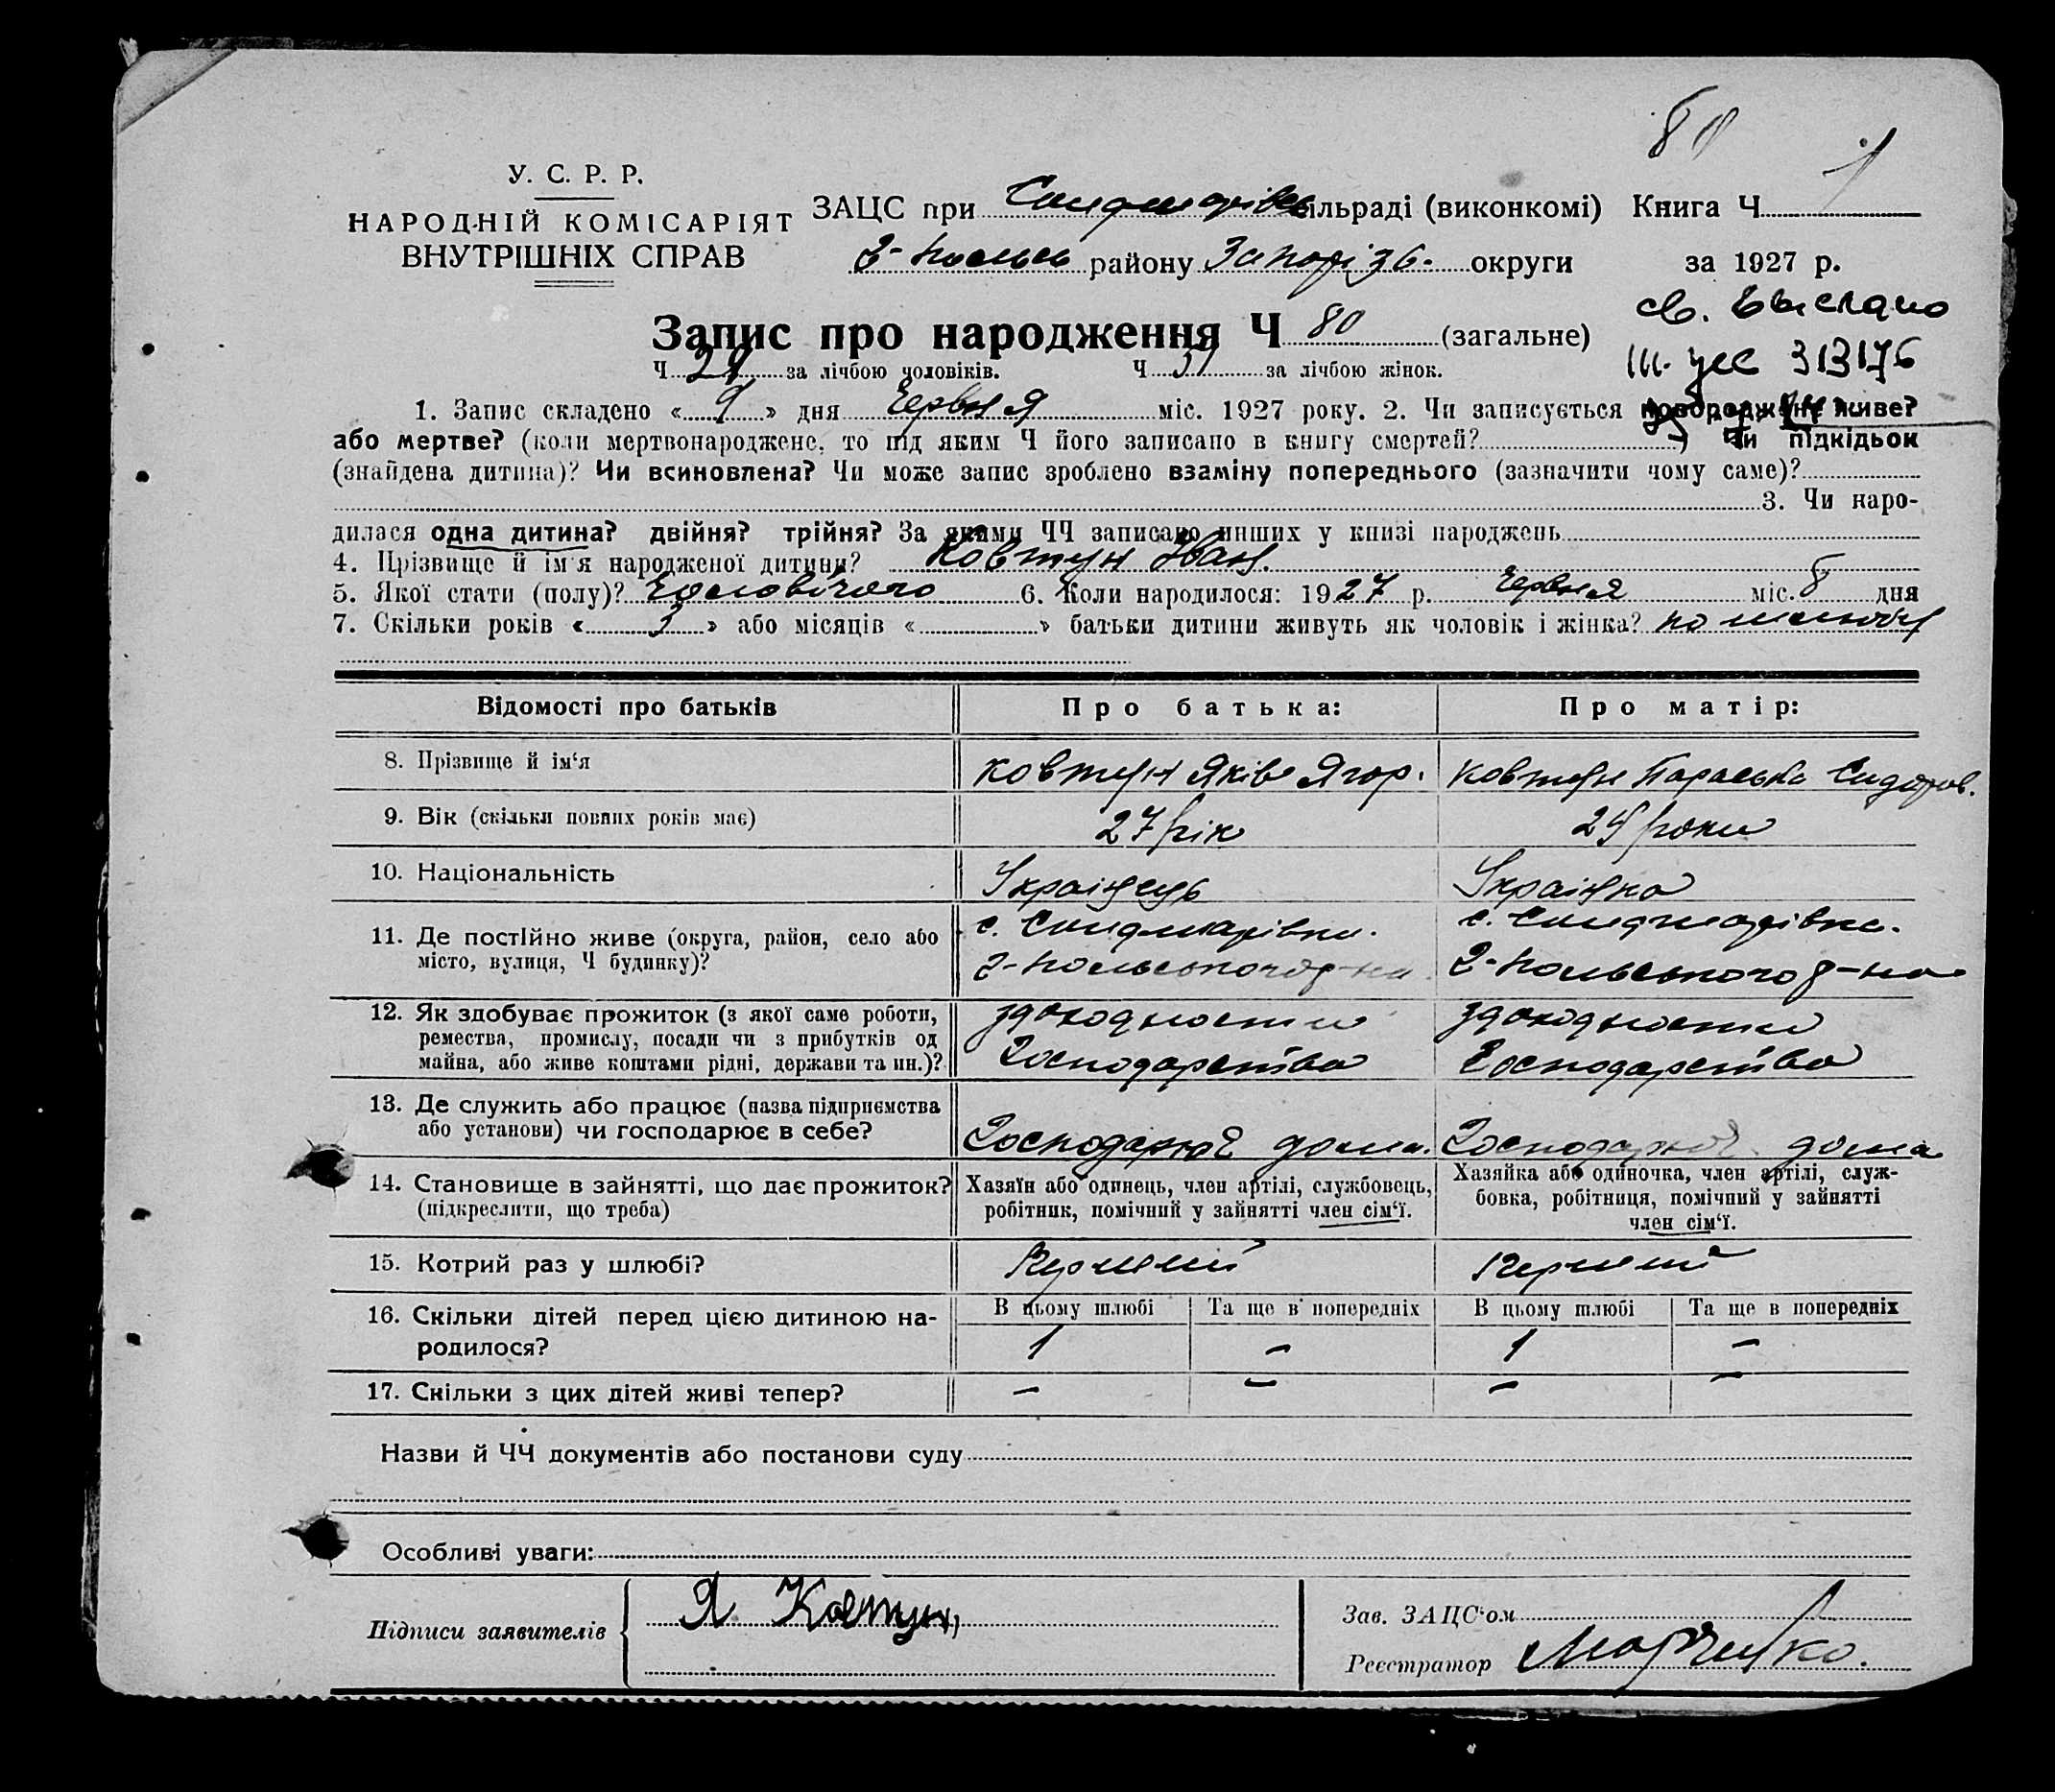 80
У. С. Р. Р.
НАРОДНІЙ КОМІСАРІЯТ
ВНУТРІШНІХ СПРАВ
ЗАЦС при сільраді (виконкомі) Книга Ч 1
району Запорізь. округи за 1927 р.
св. выслано
Запис про народження Ч 80 (загальне)
313176
Ч 29 за лічбою чоловіків. Ч 51 за лічбою жінок.
1. Запис складено « 9 » дня Червня міс. 1927 року. 2. Чи записується новороджене живе?
або мертве? (коли мертвонароджене, то під яким Ч його записано в книгу смертей? ) Чи підкідьок
(знайдена дитина)? Чи всиновлена? Чи може запис зроблено взаміну попереднього (зазначити чому саме)?
3. Чи наро-
дилася одна дитина? двійня? трійня? За якими ЧЧ записано инших у книзі народжень
4. Прізвище й ім'я народженої дитини? Ковтун Іван.
5. Якої стати (полу)? Чоловічого 6. Коли народилося: 1927 р. Червня міс. 8 дня
7. Скільки років « 3 » або місяців « » батьки дитини живуть як чоловік і жінка?
Відомості про батьків Про батька: Про матір:
8. Прізвище й ім'я Ковтун Яків Ягор. Ковтун Параська Сидоров.
9. Вік (скільки повних років має) 27 рік 24 роки
10. Національність Українець Українка
11. Де постійно живе (округа, район, село або
місто, вулиця, Ч будинку)?
12. Як здобуває прожиток (з якої саме роботи,
ремества, промислу, посади чи з прибутків од
майна, або живе коштами рідні, держави та ин.)?
здоходности здоходности
Господарства Господарства
13. Де служить або працює (назва підприємства
або установи) чи господарює в себе?
Господарює дома. Господарює дома
14. Становище в зайнятті, що дає прожиток?
(підкреслити, що треба)
Хазяїн або одинець, член артілі, службовець,
робітник, помічний у зайнятті член сім'ї.
Хазяйка або одиночка, член артілі, служ-
бовка, робітниця, помічний у зайнятті
член сім'ї.
15. Котрий раз у шлюбі? Перший Перший
16. Скільки дітей перед цією дитиною на-
родилося?
В цьому шлюбі Та ще в попередніх В цьому шлюбі Та ще в попередніх
1 – 1 –
17. Скільки з цих дітей живі тепер? – – – –
Назви й ЧЧ документів або постанови суду
Особливі уваги:
Підписи заявителів Я Ковтун
Зав. ЗАЦС'ом
Реєстратор Марченко.